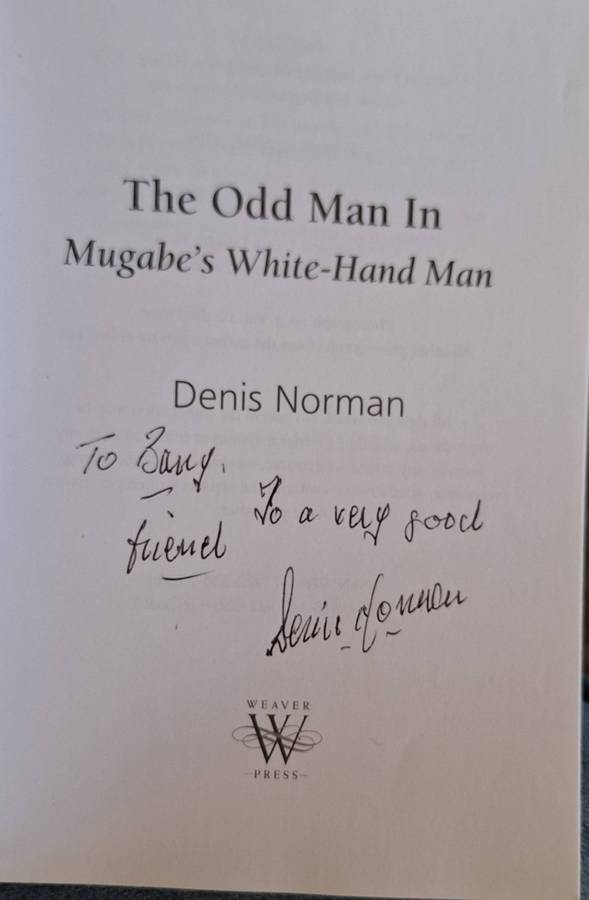 The Odd Man In
Mugabe's White-Hand Man
Denis Norman
To Barry.
To a very good
friend
Denis Norman
WEAVER
W
PRESS